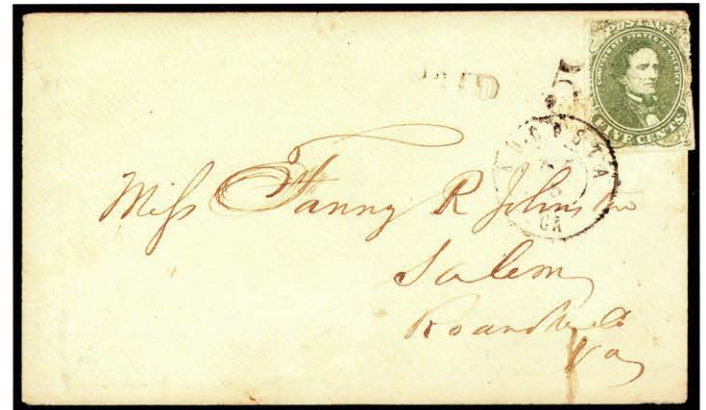 POSTAGE
CONFEDERATE STATES OF AMERICA
FIVE CENTS
PAID
5
AUGUSTA
GA
Miss Fanny R Johnston
Salem
Roanoke Co
Va